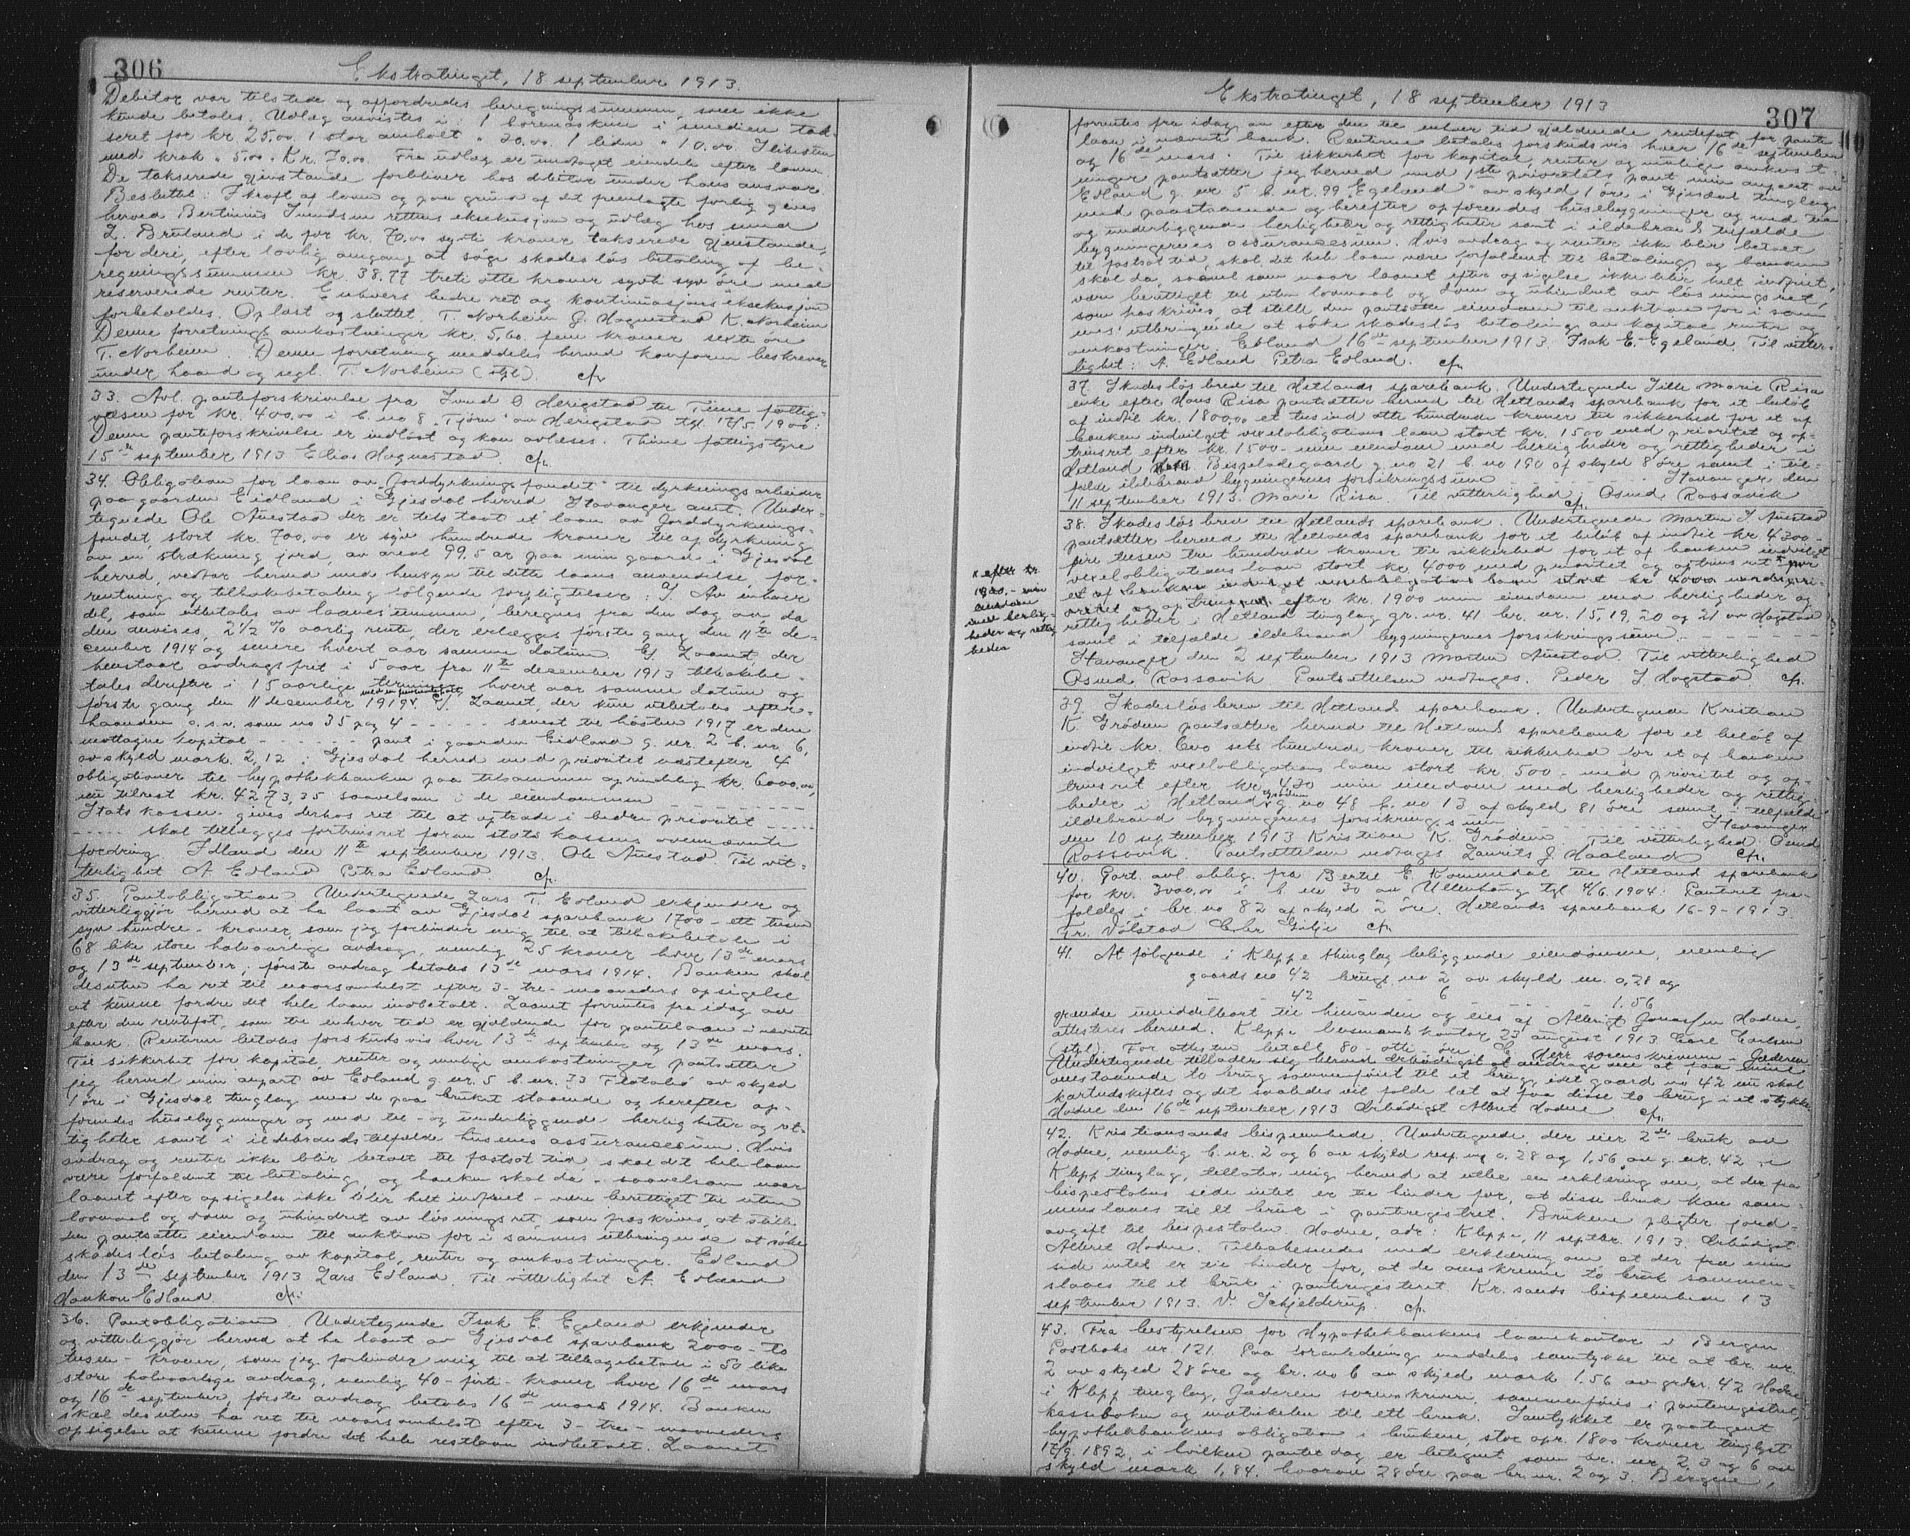 306
Ekstratinget, 18 september 1913.
Debitor var tilstede og opfordredes beregningssummen, som ikke
kunde betales. Udlæg anvistes i: 1 boremaskin i smedien tak-
seret for kr. 25.00. 1 stor ambolt " 20.00. 1 liden " 10.00.
med krok " 5.00. Kr. 70.00. Fra udlæg er undtaget eiendele efter loven.
De takserede gjenstande forbliver hos debitor under hans ansvar.
Besluttet: I kraft af loven og paa grund af det fremlagte forlig gives
herved Bertinius Tunheim rettens eksekusjon og udlæg hos
L. Bruland i de for kr. 70.00 sytti kroner takserede gjenstande,
for deri, efter lovlig omgang at søge skadesløs betaling af be-
regningssummen kr. 38.77 tretti otte kroner sytti syv øre med
reserverede renter. Enhvers bedre ret og kontinuasjonseksekusjon
forbeholdes. Oplæst og sluttet. T. Norheim G. Hognestad K. Norheim
Denne forretnings omkostninger kr. 5,60 fem kroner sexti øre
T. Norheim. Denne forretning meddeles herved konform beskreven
under haand og segl. T. Norheim (sgl). cfr.
33. Avl. panteforskrivelse fra Tund O Herigstad til Time fattig-
væsen for kr. 400,00 i b. no 8 "Tjørn" av Herigstad tgl. 17/5 1900:
Denne panteforskrivelse er indløst og kan avlæses. Thime fattigstyre
15de september 1913 Elias Hognestad cfr.
34. Obligation for laan av "Jorddyrkningsfondet" til dyrkningsarbeider
paa gaarden Eidland i Gjesdal herred Stavanger amt. Under-
tegnede Ole Auestad der er tilstaat et laan av Jorddyrknings-
fondet, stort kr. 700,00 er syv hundrede kroner til opdyrkning
av en strækning jord, av areal 99,5 ar paa min gaard i Gjesdal
herred, vedtar herved med hensyn til dette laans anvendelse, for-
rentning og tilbakebetaling følgende forpligtelser: I. Av enhver
del, som utbetales av laanesummen, beregnes, fra den dag av, da
den anvises, 2 1/2 % aarlig rente, der erlægges første gang den 11te de-
cember 1914 og senere hvert aar samme datum. Laanet, der
henstaar avdragsfrit i 5 aar fra 11te desember 1913 tilbakebe-
tales derefter i 15 aarlige terminer hvert aar samme datum og
første gang den 11 december 1919. Laanet, der kun utbetales efter-
haanden o.s.v. som no 35 pag 4 - - - - - senest til høsten 1917 er den
mottagne kapital - - - - - pant i gaarden Eidland g. nr. 2 b. no 6,
av skyld mark. 2,12 i Gjesdal herred med prioritet næstefter 4
obligationer til hypothekbanken paa tilsammen oprindelig kr. 6000,00,
nu tilrest kr. 4273,35 saavelsom i de eiendommen - - - -
Statskassen gives derhos ret til at optræde i bedre prioritet - - - -
- - - - - skal tillægges fortrinsret foran statskassens ovennævnte
fordring. Edland den 11te september 1913. Ole Auestad. Til vit-
terlighet A Edland Petra Edland cfr.
35. Pantobligation Undertegnede Lars T. Edland erkjender og
vitterliggjør herved at ha laant av Gjesdal sparebank 1700 - ett tusen
syv hundre - kroner, som jeg forbinder mig til at tilbakebetale i
68 like store halvaarlige avdrag, nemlig 25 kroner hver 13de mars
og 13de september, første avdrag betales 13de mars 1914. Banken skal
desuten ha ret til naarsomhelst efter 3 - tre - maaneders opsigelse
at kunne fordre det hele laan indbetalt. Laanet forrentes fra idag av
efter den rentefot, som til enhver tid er gjældende for pantelaan i nævnte
bank. Renterne betales forskudsvis hver 13de september og 13de mars.
Til sikkerhet for kapital, renter og mulige omkostninger pantsætter
jeg herved min anpart av Edland g. nr. 5 b. nr. 73 Flotabø av skyld
1 øre i Gjesdal tinglag med de paa bruket staaende og herefter op-
førendes husebygninger og med til- og underliggende herligheter og ret-
tigheter samt i ildebrandstilfælde husenes assurancesum. Hvis
avdrag og renter ikke blir betalt til fastsat tid, skal det hele laan
være forfaldent til betaling, og banken skal da - saavelsom naar
laanet efter opsigelse ikke blir helt indfriet - være berettiget til uten
lovmaal og dom og uhindret av løsningsret, som foreskrives, at stille
den pantsatte eiendom til auktion for i sammes utbringende at søke
skadesløs betaling av kapital, renter og omkostninger. Edland
den 13de september 1913 Lars Edland. Til vitterlighet A. Edland
Haakon Edland. cfr.
36. Pantobligation. Undertegnede Isak E. Egeland erkjender
og vitterliggjør herved at ha laant av Gjesdal sparebank 2000 - to
tusen - kroner, som jeg forbinder mig til at tilbagebetale i 50 like
store halvaarlige avdrag, nemlig 40 - firti - kroner hver 16de mars
og 16de september, første avdrag betales 16de mars 1914. Banken
skal desuten ha ret til naarsomhelst efter 3 - tre - maaneders
opsigelse at kunne fordre det hele restlaan indbetalt. Laanet
307
Ekstratinget, 18 september 1913
forrentes fra idag av efter den til enhver tid gjældende rentefot for pante-
laan i nævnte bank. Renterne betales forskudsvis hver 16de september
og 16de mars. Til sikkerhet for kapital, renter og mulige omkost-
ninger pantsætter jeg herved med 1ste prioritets pant min anpart av
Edland g. nr. 5 b. nr. 99 "Egeland" av skyld 1 øre, i Gjesdal tinglag
med paastaaende og herefter opførendes husebygninger og med til-
og underliggende herligheter og rettigheter samt i ildebrandstilfælde
bygningernes assurancesum. Hvis avdrag og renter ikke blir betalt
til fastsat tid, skal det hele laan være forfaldent til betaling, og banken
skal da, saavel som naar laanet efter opsigelse ikke blir helt indfriet,
være berettiget til uten lovmaal og dom og uhindret av løsningsret,
som foreskrives, at stille den pantsatte eiendom til auktion for i sam-
mes utbringende at søke skadesløs betaling av kapital renter og
omkostninger. Edland 16de september 1913. Isak E. Egeland. Til vitter-
lighet: A. Edland Petra Edland. cfr.
37. Skadesløsbrev til Hetlands sparebank. Undertegnede Tille Marie Risa
enke efter Hans Risa pantsætter herved til Hetlands sparebank for et beløb
af indtil kr. 1800,00 et tusind otte hundrede kroner til sikkerhed for et af
banken indvilget vexelobligations laan stort kr. 1500 med prioritet og op-
trinsret efter kr. 1500 - min eiendom med herligheder og rettigheder i
Hetland Bispeladegaard g. no 21 b. no 190 af skyld 8 øre samt i til-
fælde ildebrand bygningernes forsikringssum - - - - Stavanger den
11 september 1913. Marie Risa. Til vitterlighed: Osmd Rossavik
cfr.
38. Skadesløsbrev til Hetlands sparebank. Undertegnede Martin T. Auestad
pantsætter herved til Hetlands sparebank for et beløb af indtil kr 4300 -
fire tusen tre hundrede kroner til sikkerhed for et af banken indvilget
vexelobligations laan stort kr. 4000 med prioritet og optrinsret x
x efter kr.
1900,- min
eiendom
med herlig-
heder og rettig
heder
og optrinsret efter kr. 1900 min eiendom med herligheder og
rettigheder i Hetland tinglag gr. nr. 41 br. nr. 15, 19, 20 og 21 av Hogstad
samt i tilfælde ildebrand bygningernes forsikringssum - - - -
Stavanger den 2 september 1913 Martin Auestad. Til vitterlighed
Osmd Rossavik Pantsættelsen vedtages. Peder T. Hogstad cfr.
39. Skadesløsbrev til Hetlands sparebank. Undertegnede Kristian
K. Grødem pantsætter herved til Hetland sparebank for et beløb af
indtil kr. 600 seks hundrede kroner til sikkerhed for et af banken
indvilget vexelobligations laan stort kr 500 - med prioritet og op-
trinsret efter kr. 430 min eiendom med herligheder og rettig-
heder i Hetland Grødem g. no 48 b. no 13 af skyld 81 øre samt i tilfælde
ildebrand bygningernes forsikringssum - - - - Stavanger
den 10 september 1913 Kristian K. Grødem. Til vitterlighed Osmd
Rossavik. Pantsættelsen vedtages Laurits J. Haaland cfr.
40. Part. avl. oblig. fra Bertil E. Kommedal til Hetland sparebank
for kr. 3000,00 i b. no 30 av Ullenhaug tgl 4/6 1904: Panteret fra-
faldes i br. no 82 af skyld 2 øre. Hetlands sparebank 16-9-1913.
Fr. Vølstad Chr Gilje cfr.
41. At følgende i Kleppe thinglag beliggende eiendomme, nemlig
gaards no 42 brugs no 2 av skyld m. 0,28 og
- 42 - 6 - 1,56
grændse umiddelbart til hinanden og eies af Albrigt Jonassen Hodne,
attesteres herved. Klepp lensmandskontor 23 august 1913 Carl Carlsen
(sgl). For attesten betalt 80 - otti - øre. Herr sorenskriveren - Jæderen.
Undertegnede tillader sig herved ærbødigst at andrage om at faa mine
ovenstaaende to brug sammenføiet til et brug, idet gaard no 42 nu skal
karindskiftes og det saaledes vil falde let at faa disse to brug i et stykke
Hodne den 16de september 1913 Ærbødigst Albert Hodne cfr.
42. Kristiansands bispembede. Undertegnede, der eier 2de bruk av
Hodne, nemlig b. nr. 2 og 6 av skyld resp. m 0,28 og 1,56 av g. nr. 42 i
Klepp tinglag, tillater mig herved at utbe en erklæring om, at der fra
bispestolens side intet er til hinder for, at disse bruk kan sam-
menlaves til et bruk i pantregistret. Brukene pligter jord-
avgift til bispestolen Hodne, adr: Kleppe, 11 septbr. 1913. Ærbødigst
Albert Hodne. Tilbakesendes med erklæring om at der fra min
side intet er til hinder for, at de omskrevne to bruk sammen-
slaaes til et bruk i pantregisteret. Kr. sands bispembede 13
september 1913. V. Schjelderup. cfr.
43. Fra bestyrelsen for Hypothekbankens laanekontor i Bergen
Postboks nr. 121. Paa foranledning meddeles samtykke til at br. nr.
2 av skyld 28 øre og br. no 6 av skyld mark 1.56 av grdnr. 42 Hodne
i Klepp tinglag, Jæderen sorenskriveri, sammenføies i panteregistret,
kasseboken og matrikelen til ett bruk. Samtykket er paategnet
hypothekbankens obligation i brukene, stor opr. 1800 kroner tinglyst
17/9 1892, i hvilken pantet dog er betegnet som br. nr. 2, 3 og 6 av
skyld mark 1,84, hvorav 28 øre paa br. nr. 2 og 3. Bergen,